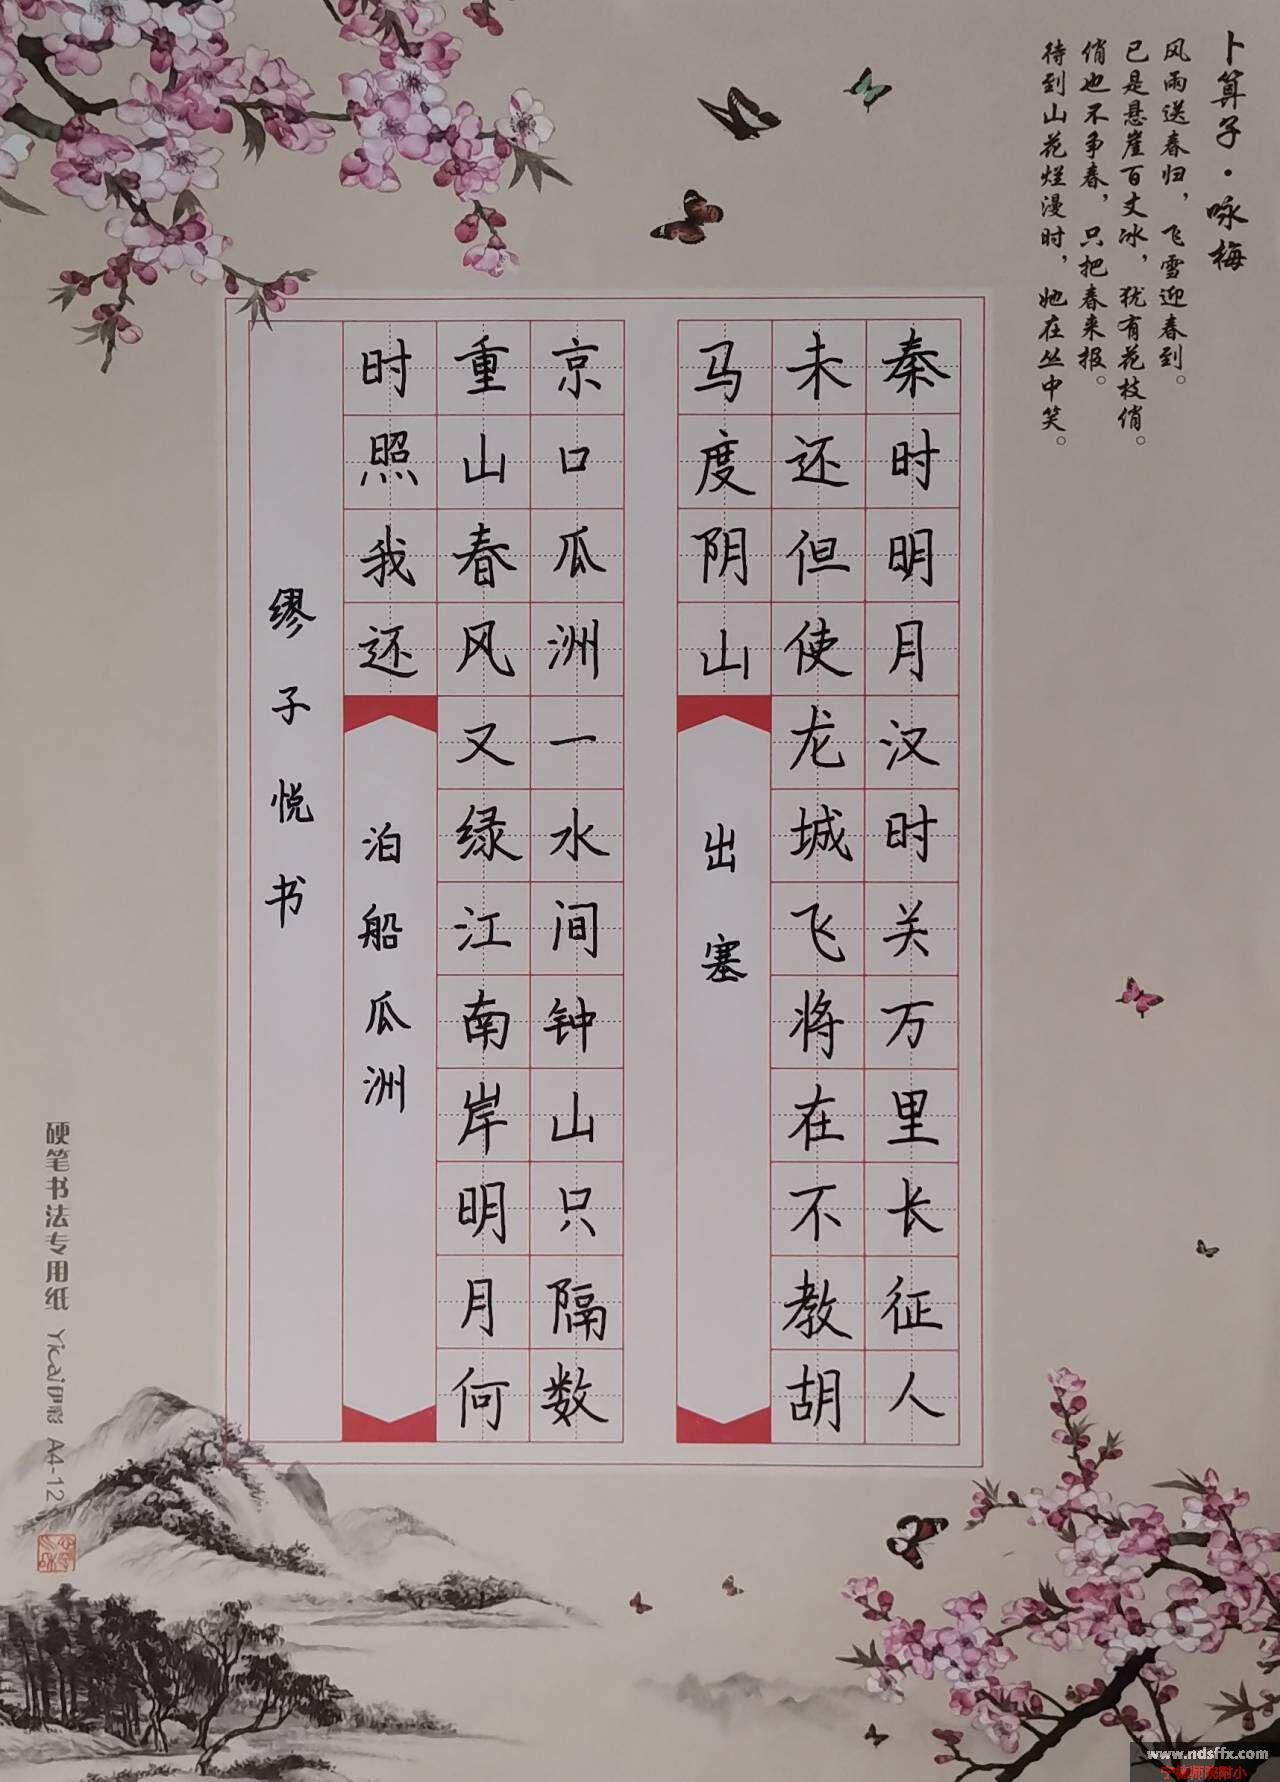 卜算子·咏梅
风雨送春归，飞雪迎春到。
已是悬崖百丈冰，犹有花枝俏。
俏也不争春，只把春来报。
待到山花烂漫时，她在丛中笑。
秦时明月汉时关万里长征人
未还但使龙城飞将在不教胡
马度阴山
出塞
京口瓜洲一水间钟山只隔数
重山春风又绿江南岸明月何
时照我还
泊船瓜洲
缪子悦书
硬笔书法专用纸 Yicai易彩 A4-12
www.ndsffx.com
宁德师院附小